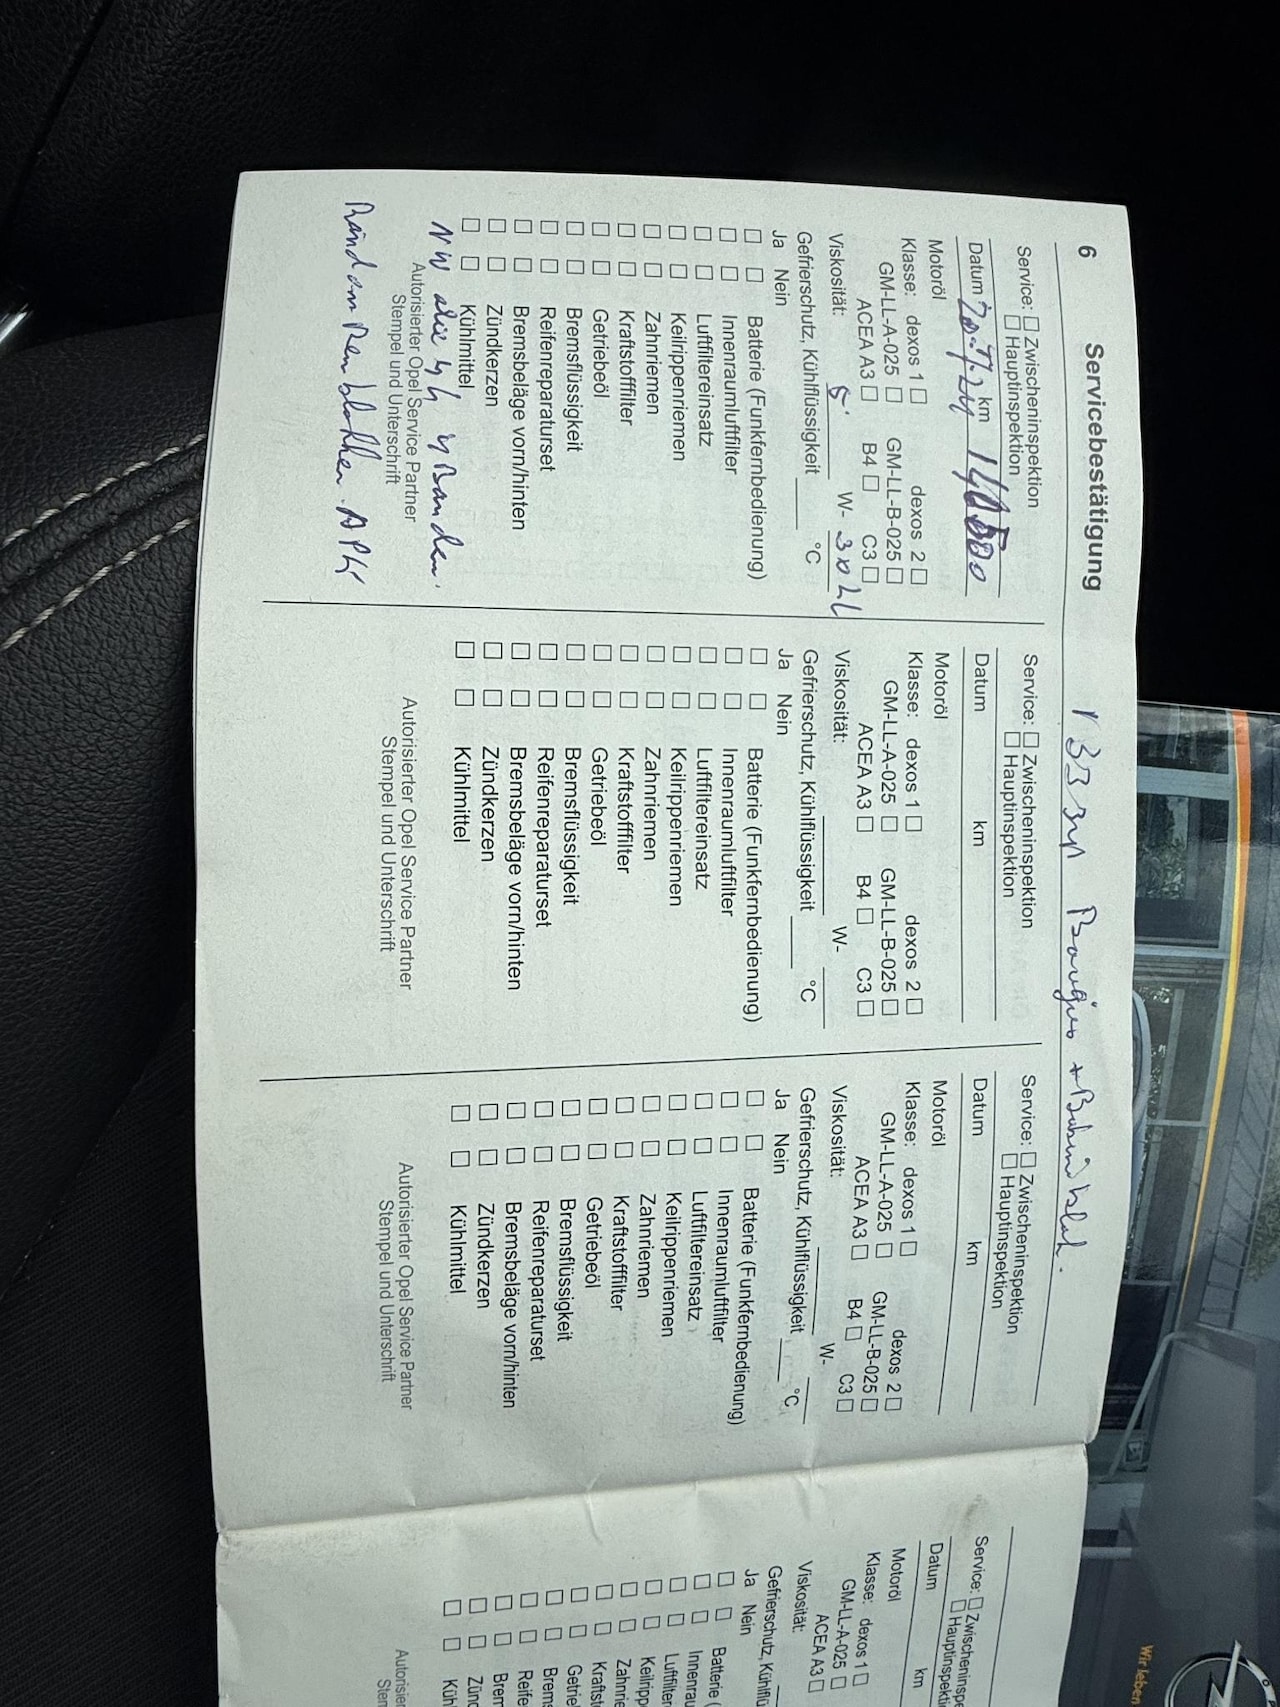 6 Servicebestätigung
Service: Zwischeninspektion
Hauptinspektion
Datum 20.7.24 km
Motoröl
Klasse: dexos 1 dexos 2
GM-LL-A-025 GM-LL-B-025
ACEA A3 B4 C3
Viskosität: 5 W- 30
Gefrierschutz, Kühlflüssigkeit °C
Ja Nein
Batterie (Funkfernbedienung)
Innenraumluftfilter
Luftfiltereinsatz
Keilrippenriemen
Zahnriemen
Kraftstofffilter
Getriebeöl
Bremsflüssigkeit
Reifenreparaturset
Bremsbeläge vorn/hinten
Zündkerzen
Kühlmittel
Autorisierter Opel Service Partner
Stempel und Unterschrift
Service: Zwischeninspektion
Hauptinspektion
Datum km
Motoröl
Klasse: dexos 1 dexos 2
GM-LL-A-025 GM-LL-B-025
ACEA A3 B4 C3
Viskosität: W-
Gefrierschutz, Kühlflüssigkeit °C
Ja Nein
Batterie (Funkfernbedienung)
Innenraumluftfilter
Luftfiltereinsatz
Keilrippenriemen
Zahnriemen
Kraftstofffilter
Getriebeöl
Bremsflüssigkeit
Reifenreparaturset
Bremsbeläge vorn/hinten
Zündkerzen
Kühlmittel
Autorisierter Opel Service Partner
Stempel und Unterschrift
Service: Zwischeninspektion
Hauptinspektion
Datum km
Motoröl
Klasse: dexos 1 dexos 2
GM-LL-A-025 GM-LL-B-025
ACEA A3 B4 C3
Viskosität: W-
Gefrierschutz, Kühlflüssigkeit °C
Ja Nein
Batterie (Funkfernbedienung)
Innenraumluftfilter
Luftfiltereinsatz
Keilrippenriemen
Zahnriemen
Kraftstofffilter
Getriebeöl
Bremsflüssigkeit
Reifenreparaturset
Bremsbeläge vorn/hinten
Zündkerzen
Kühlmittel
Autorisierter Opel Service Partner
Stempel und Unterschrift
Service: Zwischeninspe
Hauptinspekti
Datum km
Motoröl
Klasse: dexos 1
GM-LL-A-025
ACEA A3
Viskosität:
Gefrierschutz, Kühlflü
Ja Nein
Batterie (
Innenra
Luftfilter
Keilripp
Zahnri
Kraftst
Getrie
Brems
Reife
Brem
Zün
Küh
Autorisier
Sten
Wir leben